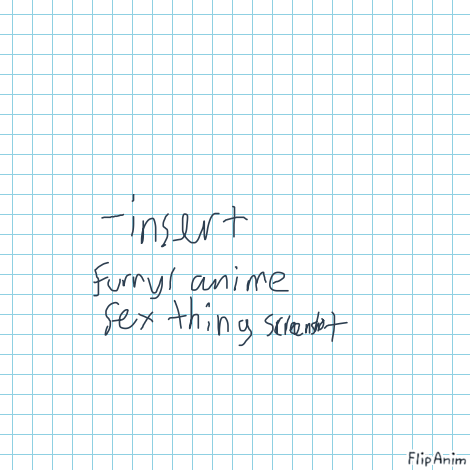 -insert
furryr anime
sex thing screenshot
FlipAnim